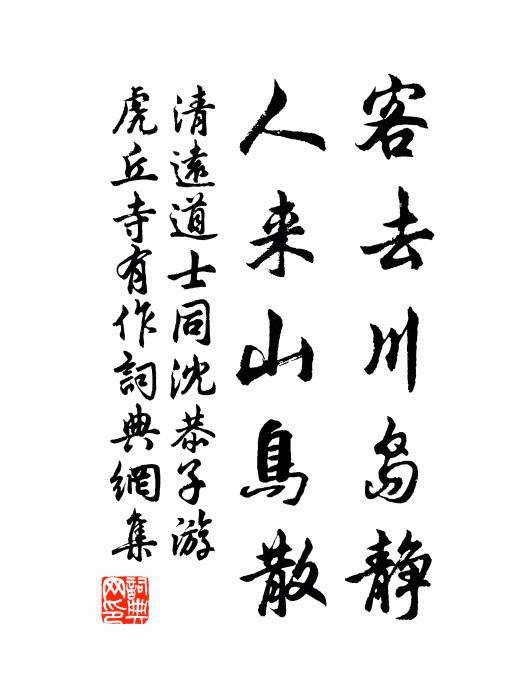 客去川島静
人来山鳥散
清遠道士同沈恭子游
虎丘寺有作詞典網集
詞典
网印